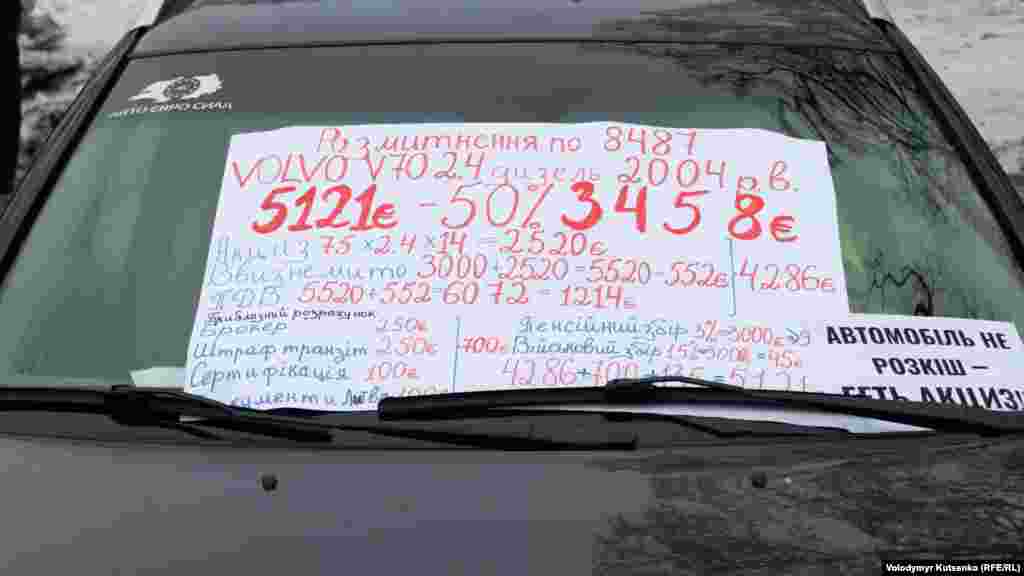 АВТО ЄВРО СИЛА
Розмитнення по 8487
VOLVO V70 2.4 дизель 2004 р.в.
5121€ -50% 3458€
Акциз 75 × 2.4 × 14 = 2520€
Ввізне мито 3000+2520=5520-552€
4286€
ПДВ 5520+552=6072=1214€
Приблизний розрахунок
Брокер 250€
Штраф транзіт 250€
700€
Сертифікація 100€
Пенсійний збір 3%=3000€
Військовий збір 1.5%=3000€=45€
4286+700+135=5121
АВТОМОБІЛЬ НЕ
РОЗКІШ –
ГЕТЬ АКЦИЗ!
Volodymyr Kutsenko (RFE/RL)